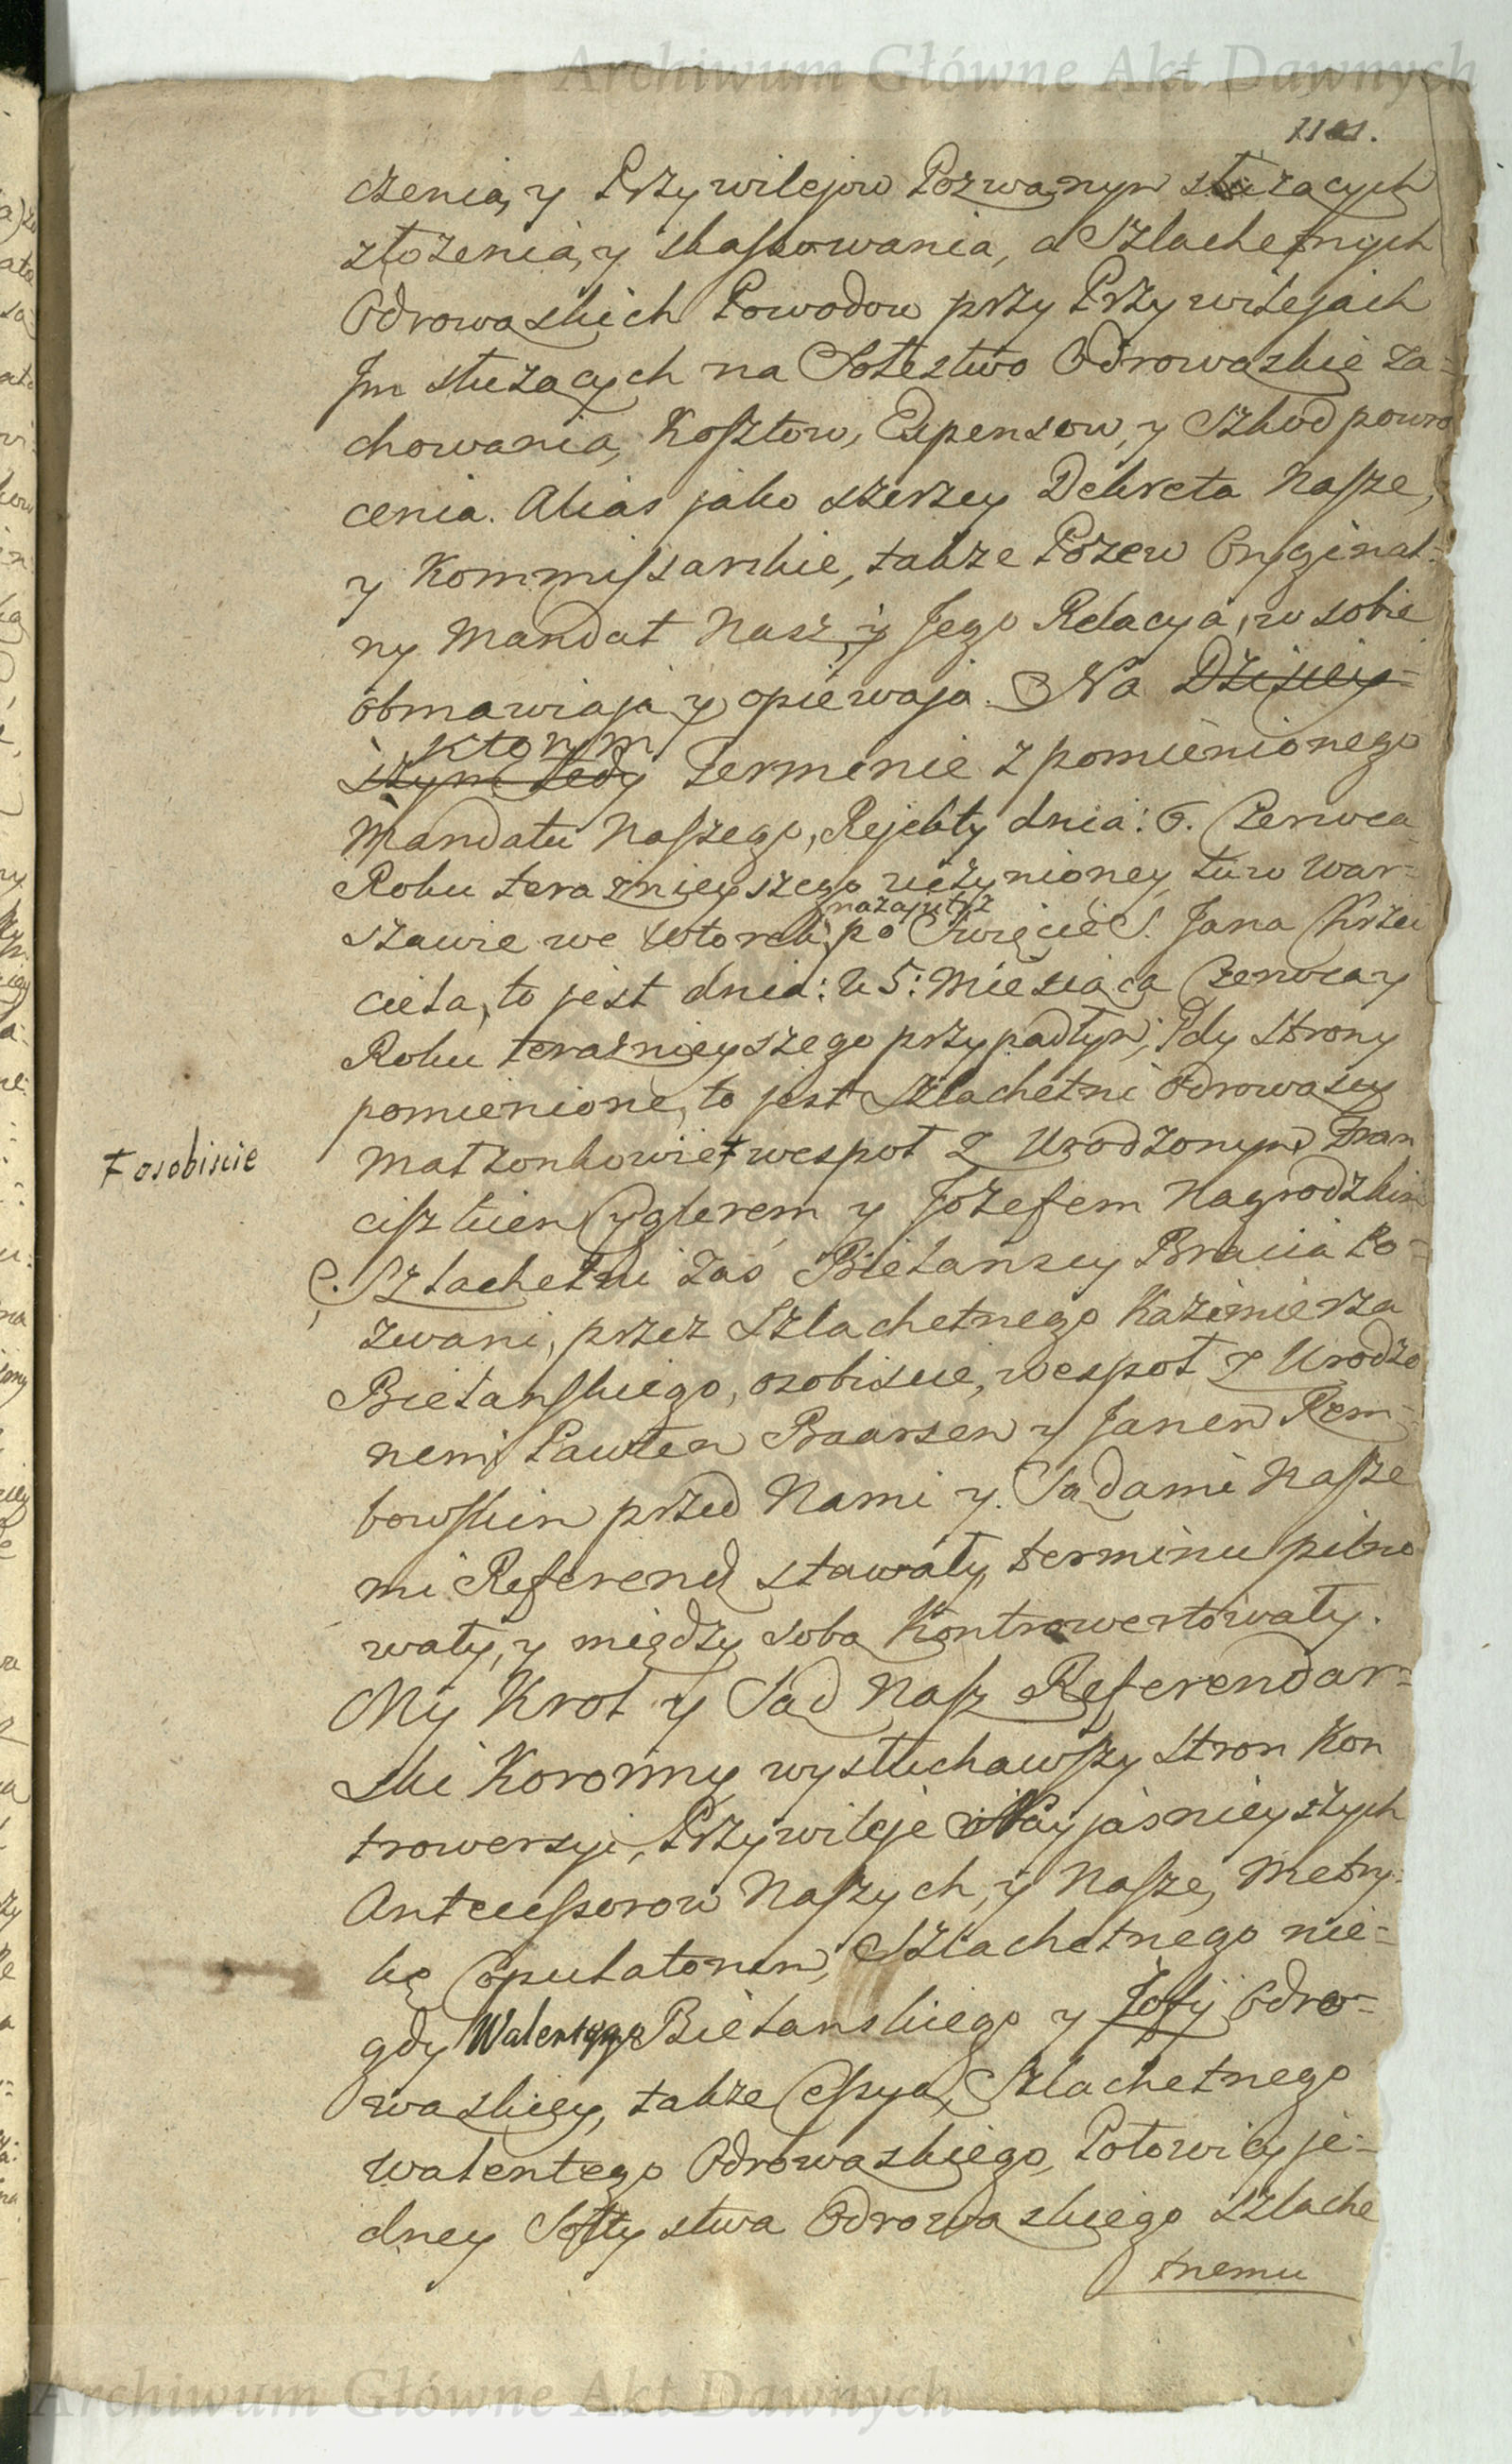 Archiwum Główne Akt Dawnych
czenia, y Przywilejow Pozwanym służących
złożenia, y skassowania, a Szlachetnych
Odrowąskich Powodow przy Przywilejach
Jm służących na Sołestwo Odrowąskie za-
chowania, Kosztow, Expensow, y Szkod powro
cenia. Alias jako szerzey Dekreta Nasze,
y Kommissarskie, także Pozew Oryginal-
ny Mandat Nasz, y Jego Relacya, w sobie
obmawiają y opiewają. Na Dzisiey-
szym tedy
ktorym Terminie z pomienionego
Mandatu Naszego, Rejekty dnia: 6. Czerwca
Roku teraznieyszego uczynioney, tu w War-
nazajutrz
szawie we Wtorek po Swięcie S. Jana Krzci
ciela, to jest dnia: 25: Miesiąca Czerwca y
Roku teraznieyszego przypadłym, Gdy Strony
pomienione, to jest Szlachetni Odrowąscy
Ŧ osobiscie
Małzonkowie Ŧ wespoł z Urodzonym Fran
ciszkiem Cyglerem y Jozefem Nagrodzkim
Szlachetni zaś Bielanscy Bracia Po-
zwani, przez Szlachetnego Kazimierza
Bielanskiego, osobiscie, wespoł z Urodzo
nemi Pawłem Braarsem y Janem Rem-
bowskim przed Nami y Sądami Nasze
mi Referend stawały, terminu pilno
wały, y między sobą Kontrowertowały.
My Krol y Sąd Nasz Referendar-
ski Koronny wysłuchawszy Stron Kon
trowersyi, Przywileje Nayjasnieyszych
Antecessorow Naszych, y Nasze, Metry-
kę Copulatorum, Szlachetnego nie-
gdy Walentego Bielanskiego y Zofij Odro-
wąskiey, także Cessyą, Szlachetnego
Walentego Odrowąskiego, Połowicy je-
dney Sołtystwa Odrowąskiego Szlache
tnemu
Archiwum Główne Akt Dawnych